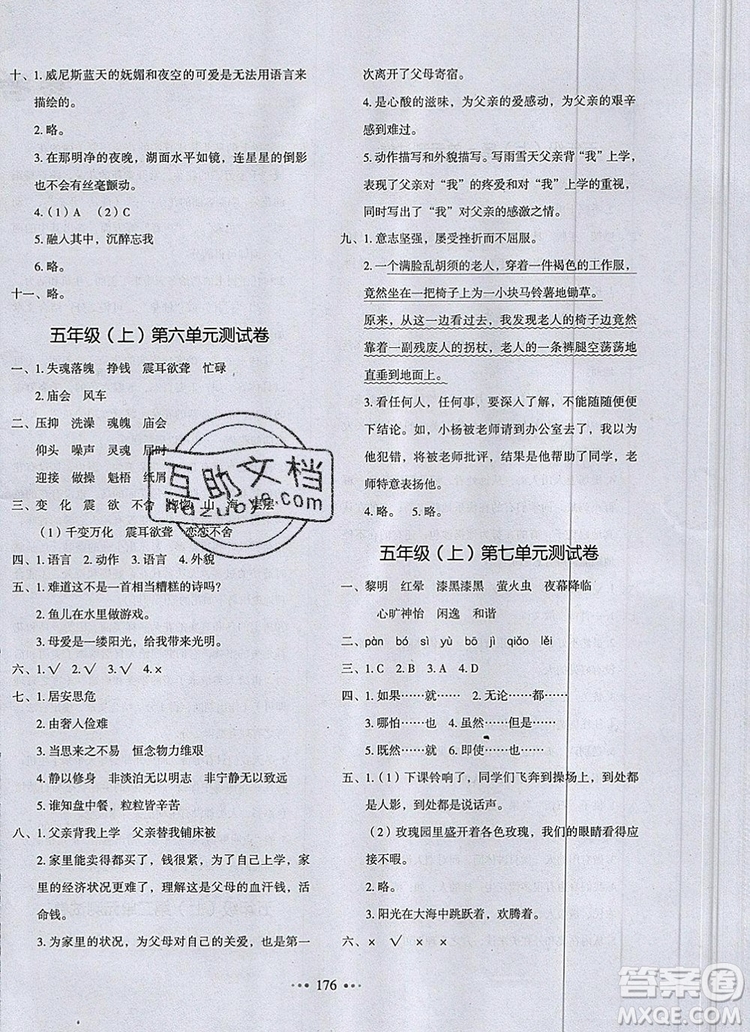 十、1. 威尼斯蓝天的妩媚和夜空的可爱是无法用语言来
描绘的。
2. 略。
3. 在那明净的夜晚，湖面水平如镜，连星星的倒影
也不会有丝毫颤动。
4. (1) A (2) C
5. 融入其中，沉醉忘我
6. 略。
十一、略。
五年级（上）第六单元测试卷
一、1. 失魂落魄 挣钱 震耳欲聋 忙碌
2. 庙会 风车
二、压抑 洗澡 魂魄 庙会
仰头 噪声 灵魂 届时
迎接 做桌 魁梧 纸屑
三、变 化 震 欲 不 舍 山 海
(1) 千变万化 震耳欲聋 恋恋不舍
四、1. 语言 2. 动作 3. 语言 4. 外貌
五、1. 难道这不是一首相当糟糕的诗吗？
2. 鱼儿在水里做游戏。
3. 母爱是一缕阳光，给我带来光明。
六、1. √ 2. √ 3. √ 4. ×
七、1. 居安思危
2. 由奢入俭难
3. 当思来之不易 恒念物力维艰
4. 静以修身 非淡泊无以明志 非宁静无以致远
5. 谁知盘中餐，粒粒皆辛苦
八、1. 父亲背我上学 父亲替我铺床被
2. 家里能卖的都买了，钱很紧，为了给我上学，家里
的经济状况更难了，理解这是父母的血汗钱，活
命钱。
3. 为家里的状况，为父母对自己的关爱，也是第一
次离开了父母寄宿。
4. 是心酸的滋味，为父亲的坚忍所震动，为父亲的艰辛
感到难过。
5. 动作描写和外貌描写。写雨雪天父亲背“我”上学，
表现了父亲对“我”的疼爱和对“我”上学的重视，
同时写出了“我”对父亲的感激之情。
九、1. 意志坚强，屡受挫折而不屈服。
2. 一个满脸乱胡须的老人，穿着一件褐色的工作服，
竟然坐在一把椅子上为一小块马铃薯地锄草。
原来，从这一边看过去，我发现老人的椅子边竟然
靠着一副残废人的拐杖，老人的一条裤腿空荡荡地
直垂到地面上。
3. 看任何人，任何事，要多观察，多了解，不能随便
下结论。如，小杨被老师请到办公室去了，我以为
他犯错，将被老师批评，结果他帮助了同学，老师
特意表扬他。
4. 略。 5. 略。
五年级（上）第七单元测试卷
一、黎明 红晕 漆黑漆黑 萤火虫 夜幕降临
心旷神怡 闲逸 和谐
二、pàn bó sì yù bō jì qiǎo lěi
三、1. C 2. B 3. A 4. C
四、1. 如果……就…… 2. 无论……都……
3. 哪怕……也 4. 虽然……但是……
5. 既然……就 6. 即使……也……
五、1. (1) 下课铃响了，同学们飞奔到操场上，到处都
是人影，到处都是说话声。
(2) 玫瑰园里盛开着各色玫瑰，我们的眼睛看得应
接不暇。
2. 略。
3. 阳光在大海中跳跃着，欢腾着。
六、× √ × √ ×
176
互助文档
Huzuoye.com
答案圈
MXQE.COM